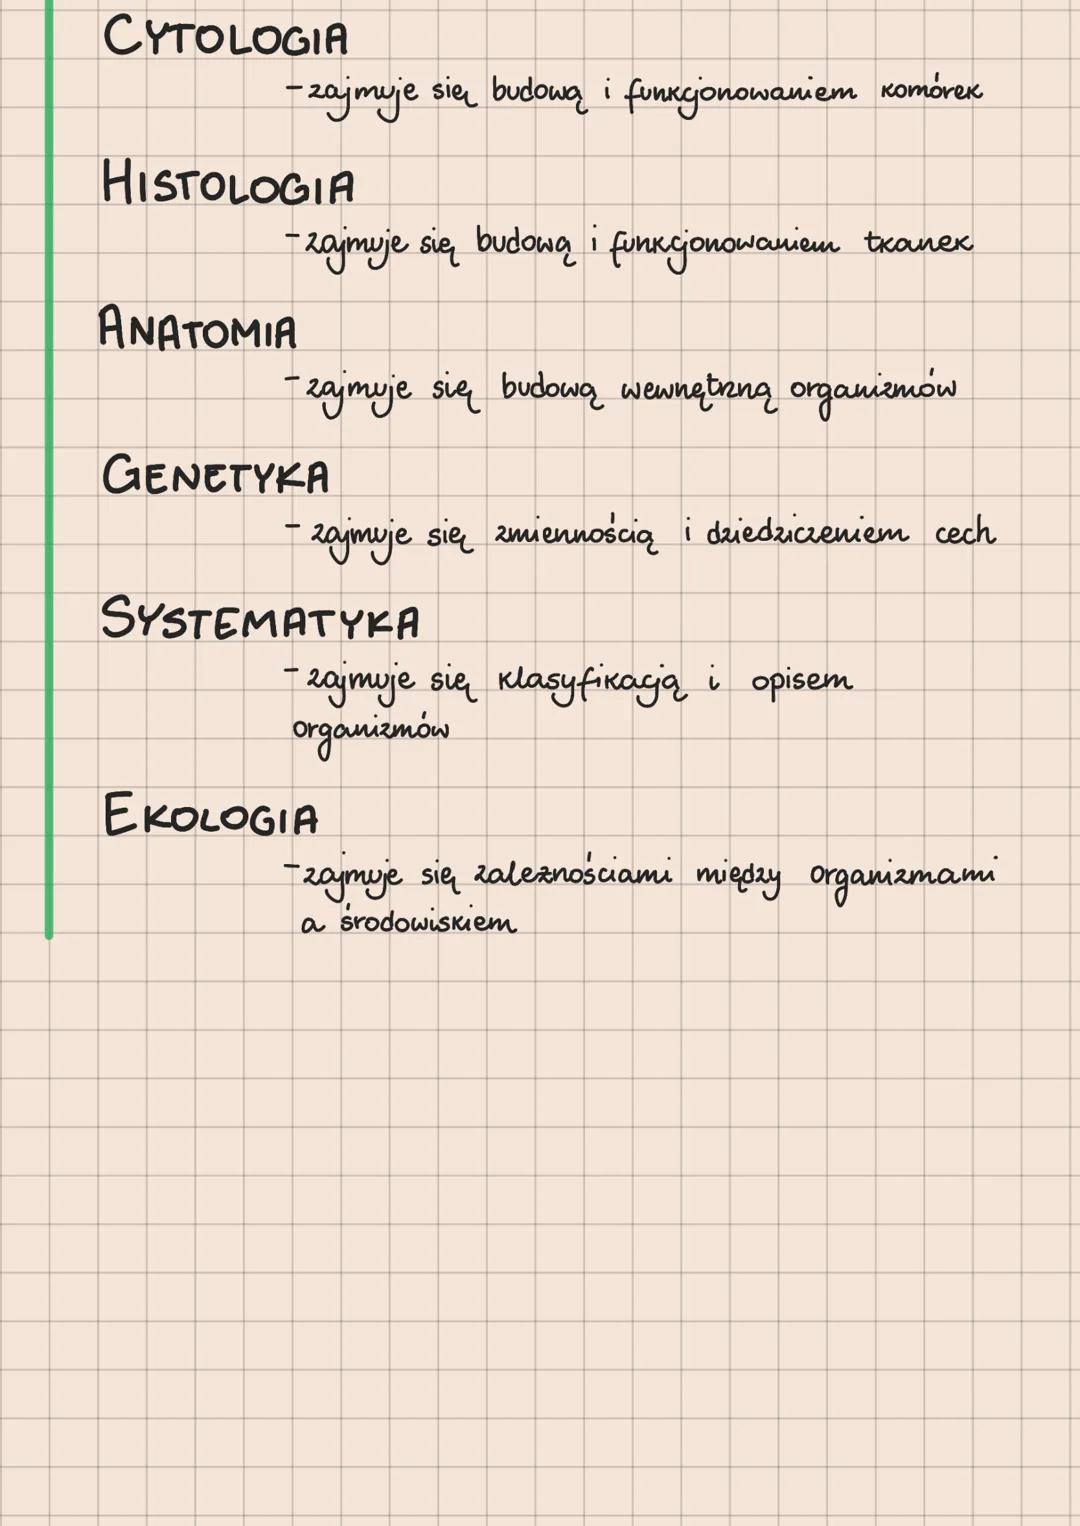 CYTOLOGIA
- zajmuje się budową i funkcjonowaniem komórek
HISTOLOGIA
- zajmuje się budową i funkcjonowaniem tkanek
ANATOMIA
- zajmuje się budową wewnętrzną organizmów
GENETYKA
- zajmuje się zmiennością i dziedziczeniem cech
SYSTEMATYKA
- zajmuje się klasyfikacją i opisem
organizmów
EKOLOGIA
- zajmuje się zależnościami między organizmami
a środowiskiem